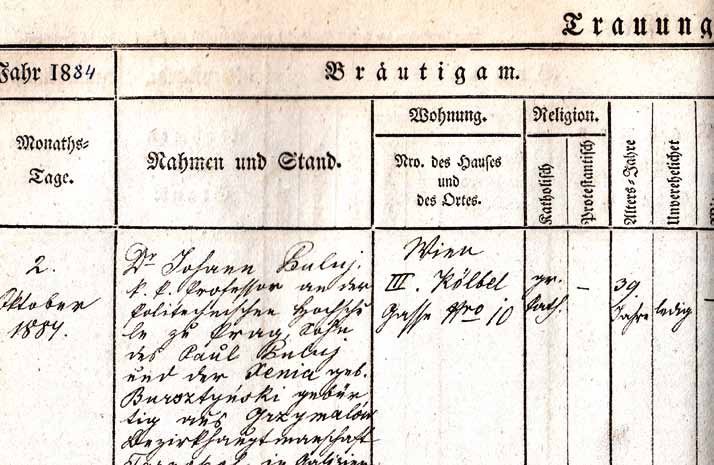 Trauung
Jahr 1884
Bräutigam.
Monaths-
Tage.
Nahmen und Stand.
Wohnung.
Nro. des Hauses
und
des Ortes.
Religion.
Katholisch
Protestantisch
Alters-Jahre
Unverehelichet
2.
Oktober
1884.
Dr Johann Puluj.
k. k. Professor an der
Politechnischen Hochschu
le zu Prag Sohn
des Paul Puluj
und der Xenia geb.
Bursztyński gebür
tig aus Grzymałow
Bezirkhauptmanschaft
Tarnopol in Galizien
Wien
III. Kölbel
Gasse Nro 10
gr.
kath.
–
39
Jahre
ledig